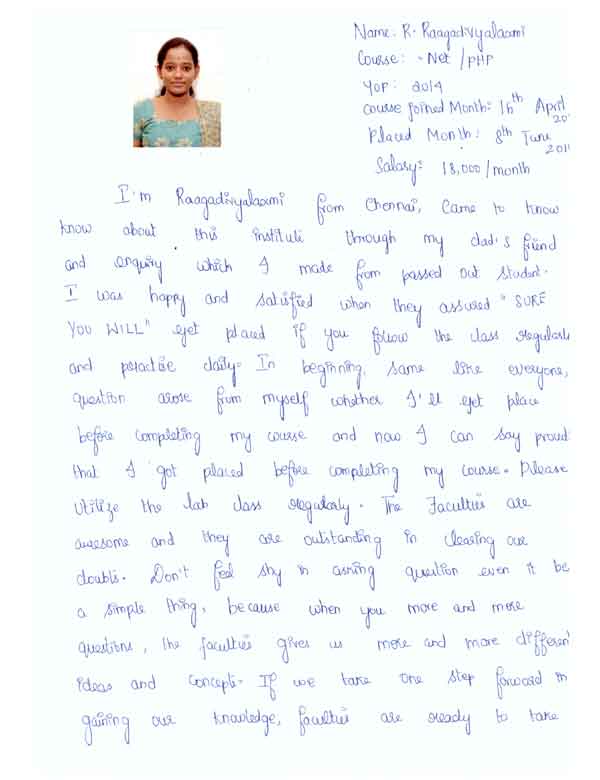 Name: R. Raagadivyalaxmi
Course: .Net / PHP
YOP: 2014
Course Joined Month: 16th April
20
Placed Month: 8th June
201
Salary: 18,000/month
I'm Raagadivyalaxmi from Chennai, Came to know
know about this institute through my dad's friend
and enquiry which I made from passed out student.
I was happy and satisfied when they assured "SURE
YOU WILL" get placed if you follow the class regularl
and practice daily. In beginning, same like everyone,
question arose from myself whether I'll get place
before completing my course and now I can say proud
that I got placed before completing my course. Please
utilize the lab class regularly. The Faculties are
awesome and they are outstanding in clearing our
doubts. Don't feel shy in asking question even it be
a simple thing, because when you more and more
questions, the faculties gives us more and more differen
ideas and concepts. If we take one step forward in
gaining our knowledge, faculties are ready to take